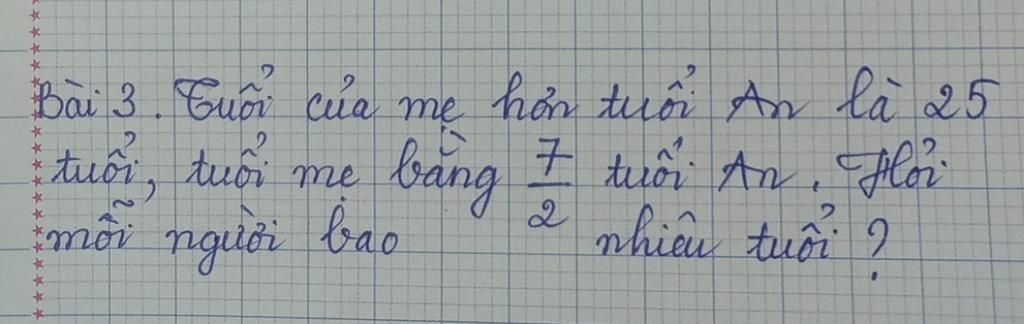 Bài 3. Tuổi của mẹ hơn tuổi An là 25
tuổi, tuổi mẹ bằng 7/2 tuổi An. Hỏi
mỗi người bao nhiêu tuổi?